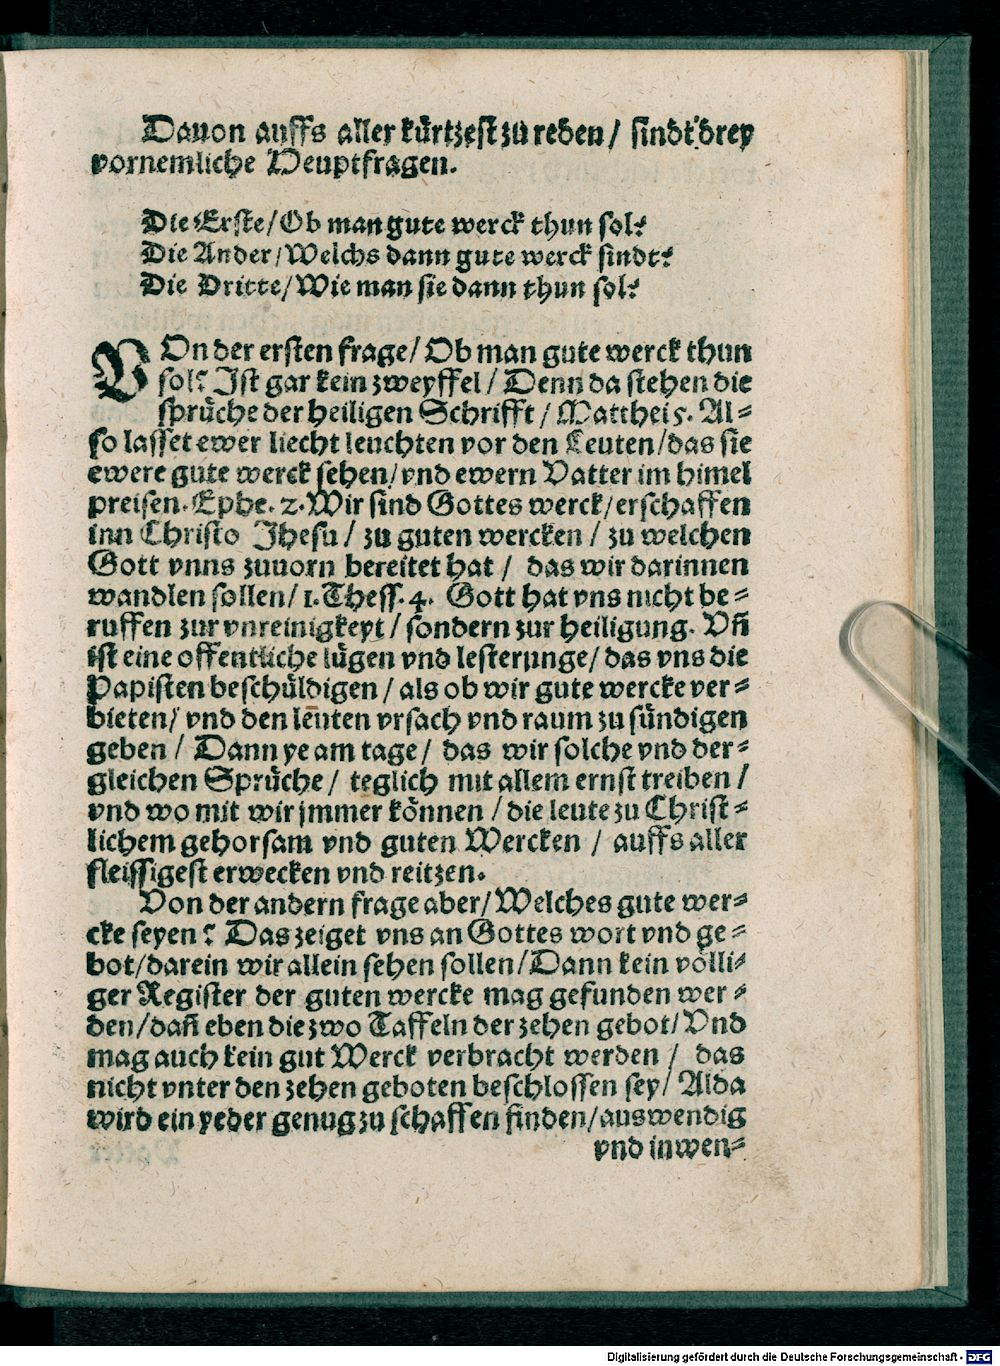 Dauon auffs aller kürtzest zu reden / sindt drey
vornemliche Heuptfragen.
Die Erste / Ob man gute werck thun sol?
Die Ander / Welchs dann gute werck sindt?
Die Dritte / Wie man sie dann thun sol?
VOn der ersten frage / Ob man gute werck thun
sol? Ist gar kein zweyffel / Denn da stehen die
sprüche der heiligen Schrifft / Matthei 5. Al=
so lasset ewer liecht leuchten vor den Leuten / das sie
ewere gute werck sehen / vnd ewern Vatter im himel
preisen. Ephe. 2. Wir sind Gottes werck / erschaffen
inn Christo Jhesu / zu guten wercken / zu welchen
Gott vnns zuuorn bereitet hat / das wir darinnen
wandlen sollen / 1. Thess. 4. Gott hat vns nicht be=
ruffen zur vnreinigkeyt / sondern zur heiligung. Vñ
ist eine offentliche lügen vnd lesterunge / das vns die
Papisten beschüldigen / als ob wir gute wercke ver=
bieten / vnd den leuten vrsach vnd raum zu sündigen
geben / Dann ye am tage / das wir solche vnd der=
gleichen Sprüche / teglich mit allem ernst treiben /
vnd wo mit wir jmmer können / die leute zu Christ=
lichem gehorsam vnd guten Wercken / auffs aller
fleissigest erwecken vnd reitzen.
Von der andern frage aber / Welches gute wer=
cke seyen? Das zeiget vns an Gottes wort vnd ge=
bot / darein wir allein sehen sollen / Dann kein völli=
ger Register der guten wercke mag gefunden wer=
den / dañ eben die zwo Taffeln der zehen gebot / Vnd
mag auch kein gut Werck verbracht werden / das
nicht vnter den zehen geboten beschlossen sey / Alda
wird ein yeder genug zu schaffen finden / auswendig
vnd inwen=
Digitalisierung gefördert durch die Deutsche Forschungsgemeinschaft - DFG